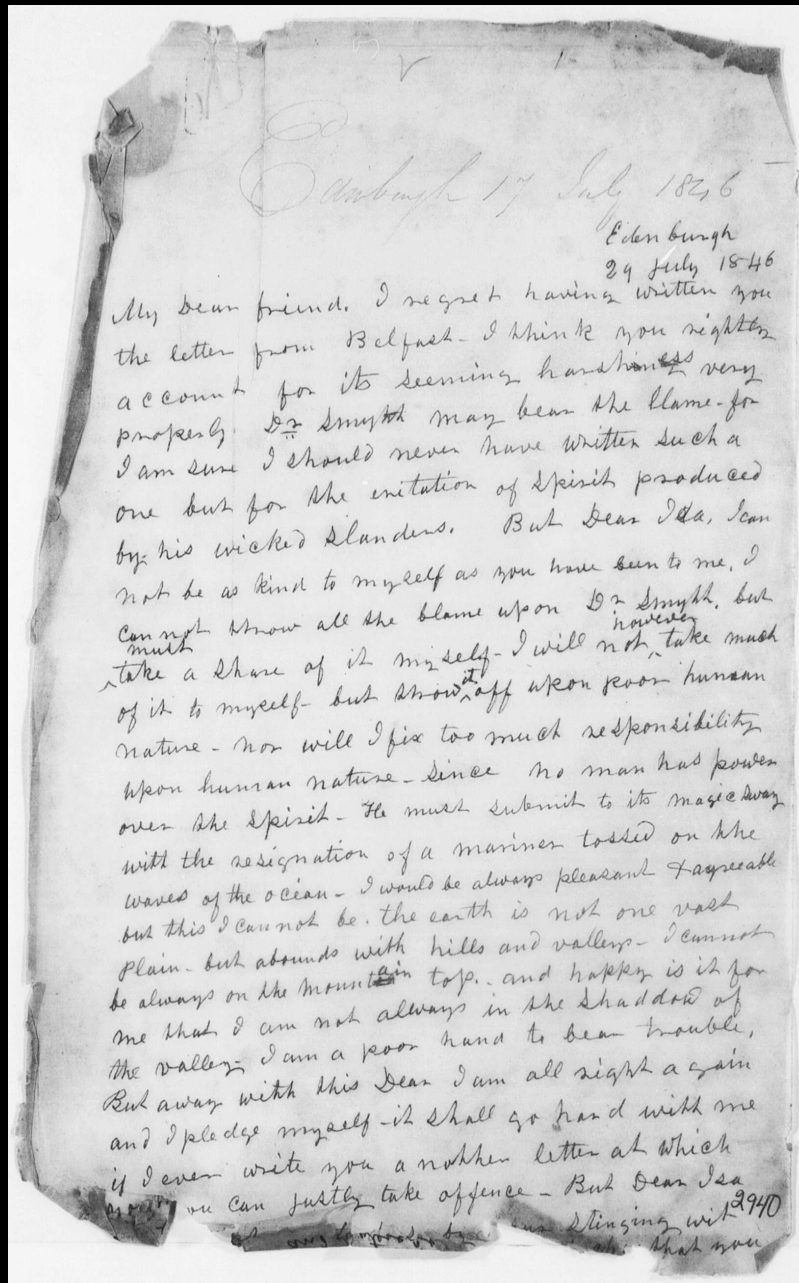 Edinburgh 17 July 1846
Edenburgh
29 July 1846
My Dear friend. I regret having written you
the letter from Belfast - I think you rightly
account for its seeming harshness very
properly. Dr Smyth may bear the blame - for
I am sure I should never have written such a
one but for the iritation of spirit produced
by his wicked slanders. But Dear Isa, I can
not be as kind to myself as you have been to me, I
cannot throw all the blame upon Dr Smyth, but
must take a share of it myself - I will not however take much
of it to myself - but throw it off upon poor human
nature - nor will I fix too much responsibility
upon human nature - since no man has power
over the spirit - He must submit to its magic sway
with the resignation of a mariner tossed on the
waves of the ocean - I would be always pleasant & agreeable
but this I cannot be. the earth is not one vast
plain - but abounds with hills and valleys - I cannot
be always on the mountain top - and happy is it for
me that I am not always in the shaddow of
the valley - I am a poor hand to bear trouble,
But away with this Dear I am all right again
and I pledge myself - it shall go hard with me
if I ever write you another letter at which
you can justly take offence - But Dear Isa
stinging wit
that you
2940